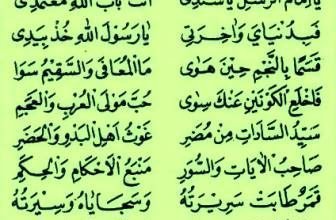 يَا إِمَامَ الرُّسْلِ يَا سَنَدِيْ أَنْتَ بَابُ اللهِ مُعْتَمَدِيْ
فَبِدُنْيَايَ وَاٰخِرَتِيْ يَارَسُوْلَ اللهِ خُذْ بِيَدِيْ
قَسَمًا بِالنَّجْمِ حِيْنَ هَوٰى مَاالْمُعَافٰى وَالسَّقِيْمُ سَوَا
فَاخْلَعِ الْكَوْنَيْنِ عَنْكَ سِوٰى حُبِّ مَوْلَى الْعُرْبِ وَالْعَجَمِ
سَيِّدُ السَّادَاتِ مِنْ مُضَرِ غَوْثُ اَهْلِ الْبَدْوِ وَالْحَضَرِ
صَاحِبُ الْاٰيَاتِ وَالسُّوَرِ مَنْبَعُ الْاَحْكَامِ وَالْحِكَمِ
قَمَرٌ طَابَتْ سَرِيْرَتُهُ وَسَجَايَاهُ وَسِيْرَتُهُ